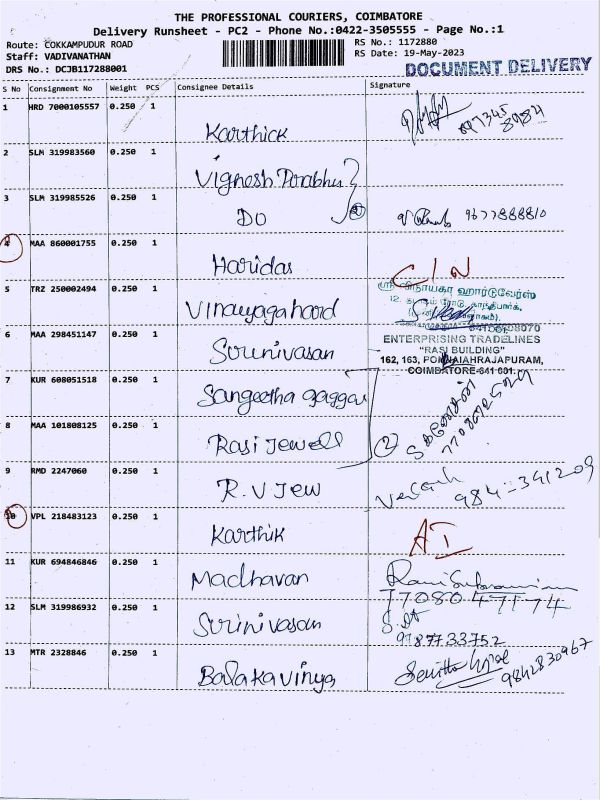 THE PROFESSIONAL COURIERS, COIMBATORE
Delivery Runsheet - PC2 - Phone No.:0422-3505555 - Page No.:1
Route: COKKAMPUDUR ROAD
Staff: VADIVANATHAN
DRS No.: DCJB117288001
RS No.: 1172880
RS Date: 19-May-2023
DOCUMENT DELIVERY
S No Consignment No Weight PCS Consignee Details Signature
1 HRD 7000105557 0.250 1
Karthick
2 SLM 319983560 0.250 1
Vignesh Prabhu
3 SLM 319985526 0.250 1
DO 9677888810
4 MAA 860001755 0.250 1
Haridas C/N
5 TRZ 250002494 0.250 1
ஸ்ரீ விநாயகா ஹார்டுவேர்ஸ்
Vinayagahard
6 MAA 298451147 0.250 1
ENTERPRISING TRADELINES
"RASI BUILDING"
Srinivasan 162, 163, RAJAPURAM,
COIMBATORE-641 001.
7 KUR 608051518 0.250 1
Sangeetha
8 MAA 101808125 0.250 1
Rasi Jewell 2
கணேசன்
9 RMD 2247060 0.250 1
R.V Jew
10 VPL 218483123 0.250 1
Karthik
11 KUR 694846846 0.250 1
Madhavan
77080 47174
12 SLM 319986932 0.250 1
Srinivasan
9787733752
13 MTR 2328846 0.250 1
Balakavinya 9842830967